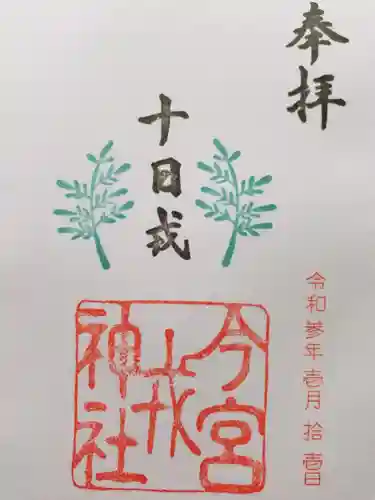 奉拝
十日戎
令和参年壱月拾壱日
今宮
戎
神社